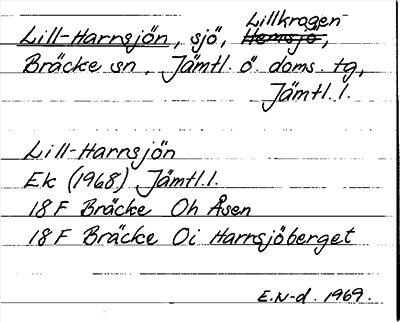 Lillkrogen-
Lill-Harrsjön, sjö, Hemsjö,
Bräcke sn. Jämtl. ö. doms. tg,
Jämtl. l.
Lill-Harrsjön
Ek (1968) Jämtl.l.
18 F Bräcke Oh Åsen
18 F Bräcke Oi Harrsjöberget
E.N-d. 1969.